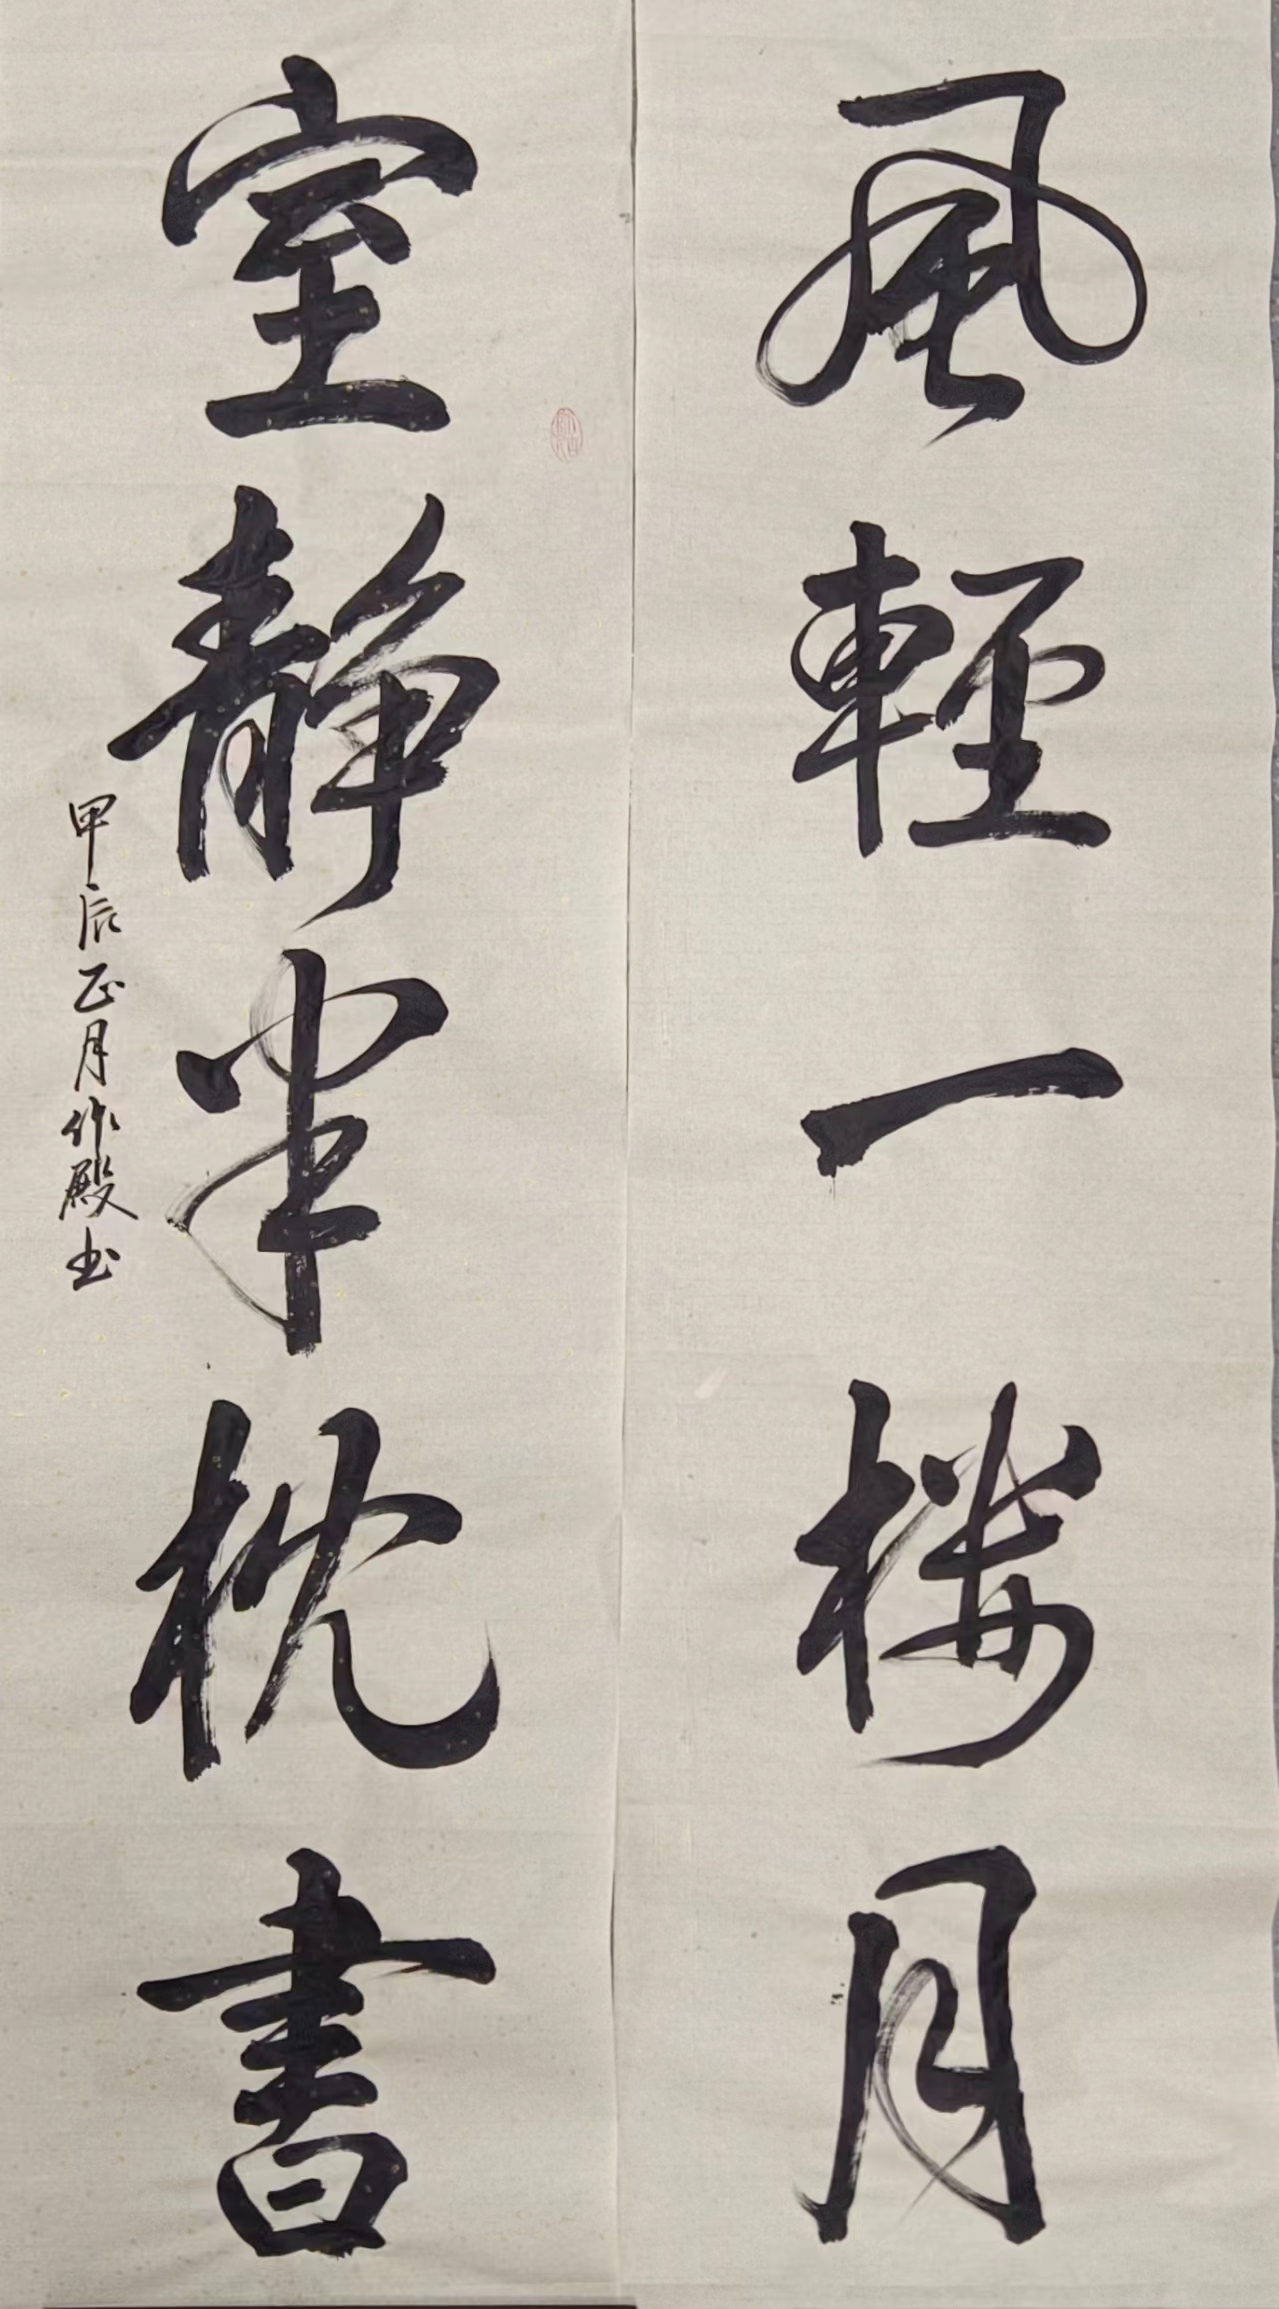 風輕一楼月
室靜半枕書
甲辰正月作殿书